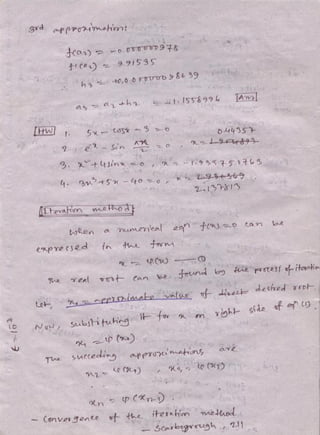 3rd approximation:
f(a₂) = -0.000000978
f'(a₂) = 991535
h₃ =
a₃ = a₂ + h₃ = -1.1558994 [Ans]
[HW] 1. 5x - cosx - 3 = 0 0.44357
2. eˣ - sin πx/2 = 0
3. x² + 4 sinx = 0, x = -1.933753763
4. 3x³ + 5x - 40 = 0, x =
2.137813
[Iteration method]
When a numerical eqn f(x) = 0 can be
expressed in the form
x = φ(x) — ①
The real root can be found by the process of iteration
Let, x₀ = approximate value of desired root
Now, substituting it for x on right side of eqn (1),
x₁ = φ(x₀)
The succeeding approximations are
x₂ = φ(x₁), x₃ = φ(x₂)
xₙ = φ(xₙ₋₁)
- Convergence of the iteration method
- Scarborough, 211